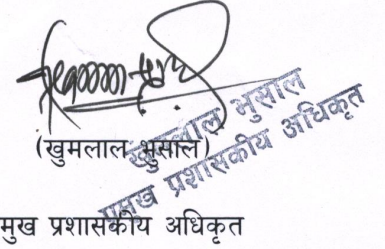 (खुमलाल भुसाल)
खुमलाल भुसाल
प्रमुख प्रशासकीय अधिकृत
मुख प्रशासकीय अधिकृत